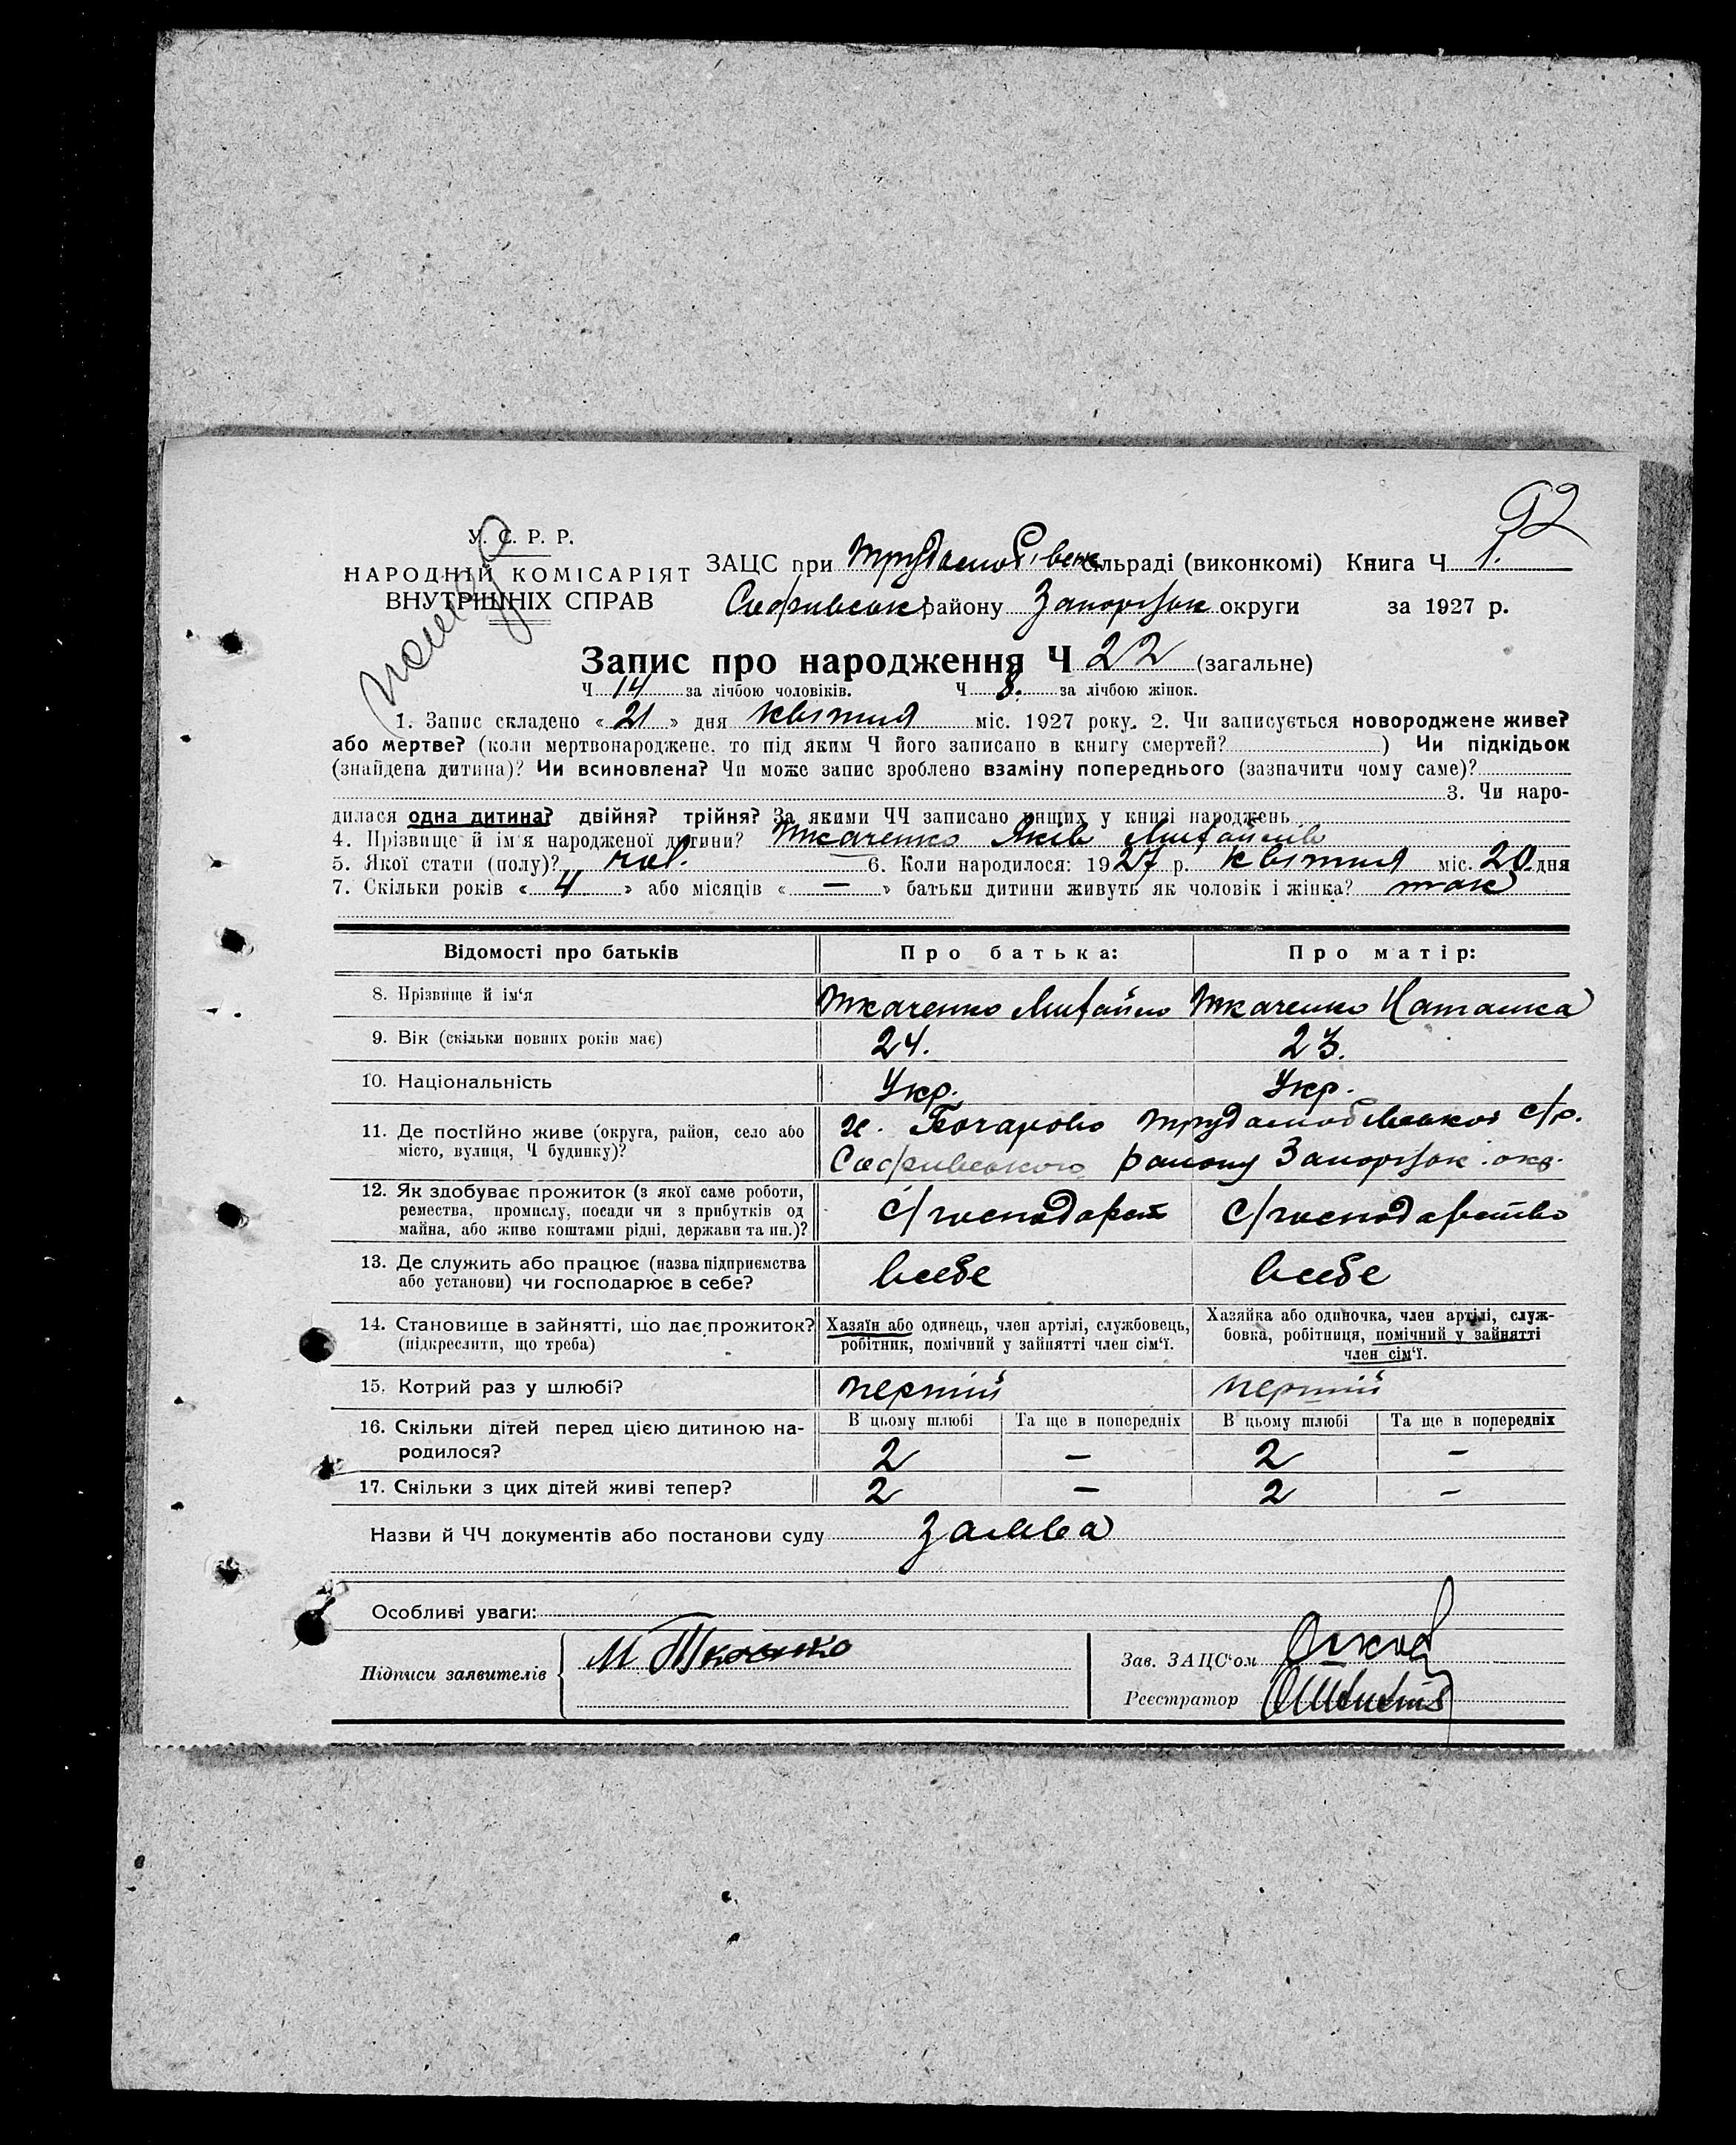 92
У. С. Р. Р.
НАРОДНІЙ КОМІСАРІЯТ
ВНУТРІШНІХ СПРАВ
ЗАЦС при Трудолюбівськ сільраді (виконкомі) Книга Ч 1.
Софиївськ району Запоріжж округи за 1927 р.
Запис про народження Ч 22 (загальне)
Ч 14 за лічбою чоловіків. Ч 8. за лічбою жінок.
1. Запис складено « 21 » дня квітня міс. 1927 року. 2. Чи записується новороджене живе?
або мертве? (коли мертвонароджене, то під яким Ч його записано в книгу смертей? ) Чи підкідьок
(знайдена дитина)? Чи всиновлена? Чи може запис зроблено взаміну попереднього (зазначити чому саме)?
3. Чи наро-
дилася одна дитина? двійня? трійня? За якими ЧЧ записано инщих у книзі народжень
4. Прізвище й ім'я народженої дитини? Ткаченко Яків Михайлів
5. Якої стати (полу)? чол. 6. Коли народилося: 1927 р. квітня міс. 20 дня
7. Скільки років « 4 » або місяців « — » батьки дитини живуть як чоловік і жінка? так
Відомості про батьків Про батька: Про матір:
8. Прізвище й ім'я Ткаченко Михайло Ткаченко Наталка
9. Вік (скільки повних років має) 24. 23.
10. Національність Укр. Укр.
11. Де постійно живе (округа, район, село або місто, вулиця, Ч будинку)? х. Бочарово Трудолюбівської с/р.
Софиївського району Запоріжж. окр.
12. Як здобуває прожиток (з якої саме роботи,
ремества, промислу, посади чи з прибутків од
майна, або живе коштами рідні, держави та ин.)? с/господарст с/господарство
13. Де служить або працює (назва підприємства
або установи) чи господарює в себе? в себе в себе
14. Становище в зайнятті, що дає прожиток?
(підкреслити, що треба)
Хазяїн або одинець, член артілі, службовець,
робітник, помічний у зайнятті член сім'ї.
Хазяйка або одиночка, член артілі, служ-
бовка, робітниця, помічний у зайнятті
член сім'ї.
15. Котрий раз у шлюбі? перший перший
16. Скільки дітей перед цією дитиною на-
родилося?
В цьому шлюбі Та ще в попередніх В цьому шлюбі Та ще в попередніх
2 — 2 —
17. Скільки з цих дітей живі тепер? 2 — 2 —
Назви й ЧЧ документів або постанови суду заява
Особливі уваги:
Підписи заявителів М. Ткаченко
Зав. ЗАЦС'ом
Реєстратор